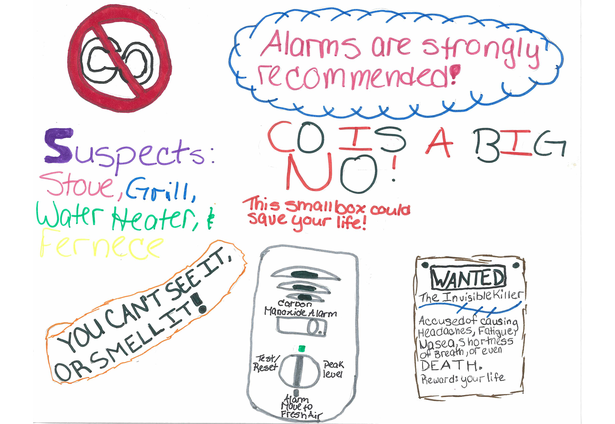 CO
Alarms are strongly
recommended!
CO IS A BIG
NO!
Suspects:
Stove, Grill,
Water Heater, &
Fernece
This small box could
save your life!
YOU CAN'T SEE IT,
OR SMELL IT!
Carbon
Manoxide Alarm
Test/
Reset
Peak
level
Alarm
Move to
Fresh Air
WANTED
The Invisible Killer
Accused of causing
Headaches, Fatiguey
Nasea, shortness
of Breath, or even
DEATH.
Reward: your life